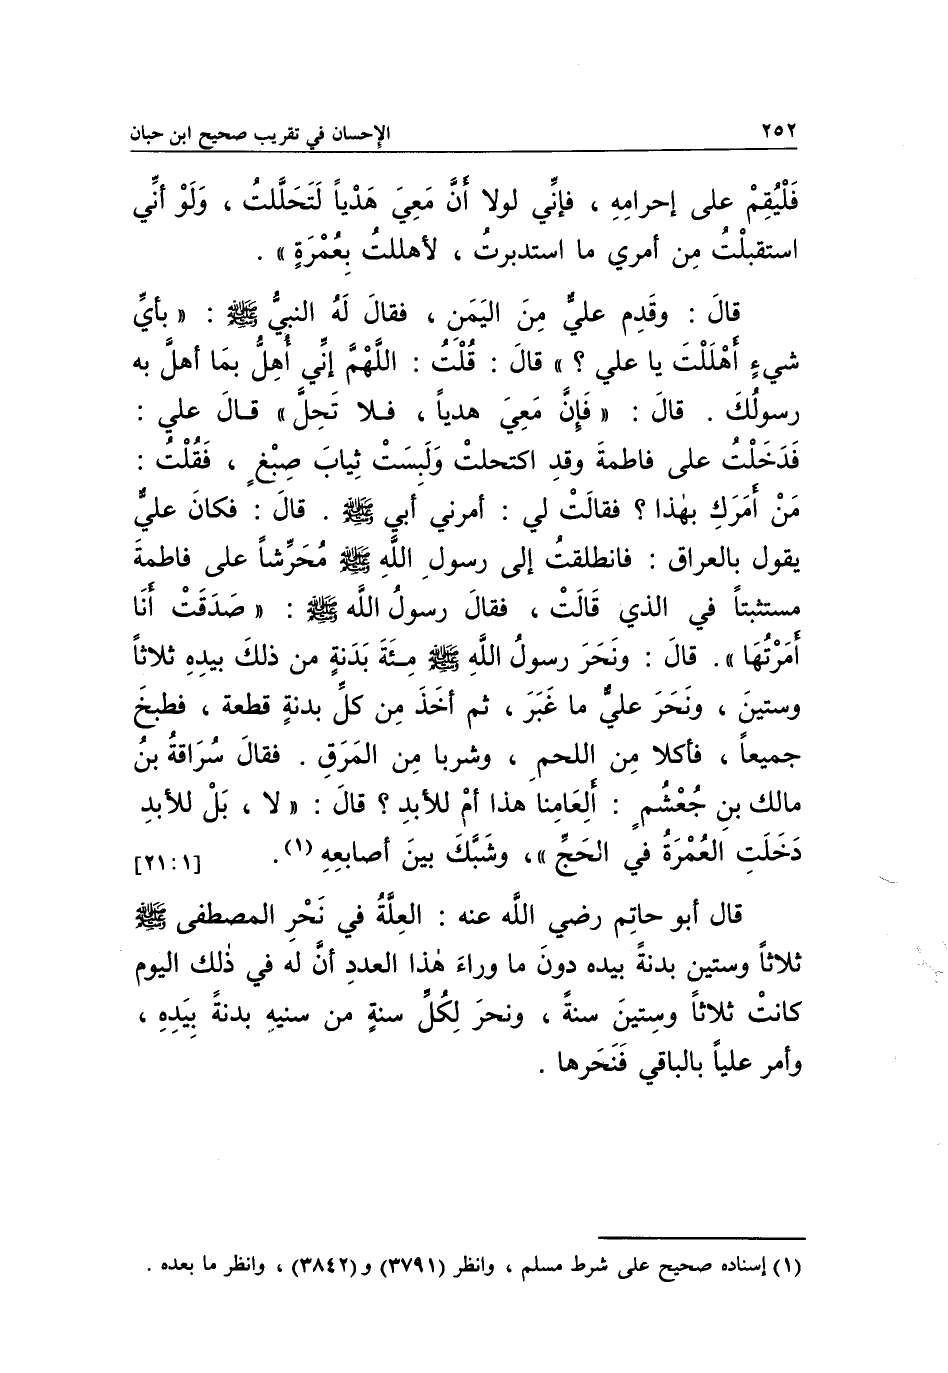 ٢٥٢ الإحسان في تقريب صحيح ابن حبان
فَلْيُقِمْ على إحرامِهِ ، فإنِّي لولا أَنَّ مَعِيَ هَدْياً لَتَحَلَّلتُ ، وَلَوْ أنِّي
استقبلْتُ مِن أمري ما استدبرتُ ، لأهللتُ بِعُمْرَةٍ » .
قالَ : وقَدِم عليٌّ مِنَ اليَمَنِ ، فقالَ لَهُ النبيُّ ﷺ : « بأيِّ
شيءٍ أَهْلَلْتَ يا علي ؟ » قالَ : قُلْتُ : اللَّهْمَّ إنِّي أُهِلُّ بمَا أهلَّ به
رسولُكَ . قالَ : « فَإِنَّ مَعِيَ هدياً ، فـلا تَحِلَّ » قـالَ علي :
فَدَخَلْتُ على فاطمةَ وقدِ اكتحلتْ وَلَبِسَتْ ثِيابَ صِبْغٍ ، فَقُلْتُ :
مَنْ أَمَرَكِ بهٰذا ؟ فقالَتْ لي : أمرني أبي ﷺ . قالَ : فكانَ عليٌّ
يقول بالعراق : فانطلقتُ إلى رسولِ اللَّهِ ﷺ مُحَرِّشاً على فاطمةَ
مستثبتاً في الذي قَالَتْ ، فقالَ رسولُ اللَّه ﷺ : « صَدَقَتْ أَنَا
أَمَرْتُهَا ». قالَ : ونَحَرَ رسولُ اللَّهِ ﷺ مِـئَةَ بَدَنةٍ من ذلكَ بيدِهِ ثلاثاً
وستينَ ، ونَحَرَ عليٌّ ما غَبَرَ ، ثم أخَذَ مِن كلِّ بدنةٍ قطعة ، فطبخَ
جميعاً ، فأكلا مِن اللحمِ ، وشربا مِن المَرَقِ . فقالَ سُرَاقةُ بنُ
مالك بنِ جُعْشُمٍ : أَلِعَامِنا هذا أمْ للأبدِ ؟ قالَ : « لا ، بَلْ للأبدِ
دَخَلَتِ العُمْرَةُ في الحَجِّ »، وشَبَّكَ بينَ أصابعِهِ (١). [٢١:١]
قال أبو حاتِم رضي اللَّه عنه : العِلَّةُ في نَحْرِ المصطفى ﷺ
ثلاثاً وستين بدنةً بيده دونَ ما وراءَ هٰذا العددِ أنَّ له في ذٰلك اليوم
كانتْ ثلاثاً وسِتينَ سنةً ، ونحرَ لِكُلِّ سنةٍ من سنيهِ بدنةً بِيَدِهِ ،
وأمر علياً بالباقي فَنَحَرها .
(١) إسناده صحيح على شرط مسلم ، وانظر (٣٧٩١) و(٣٨٤٢) ، وانظر ما بعده .